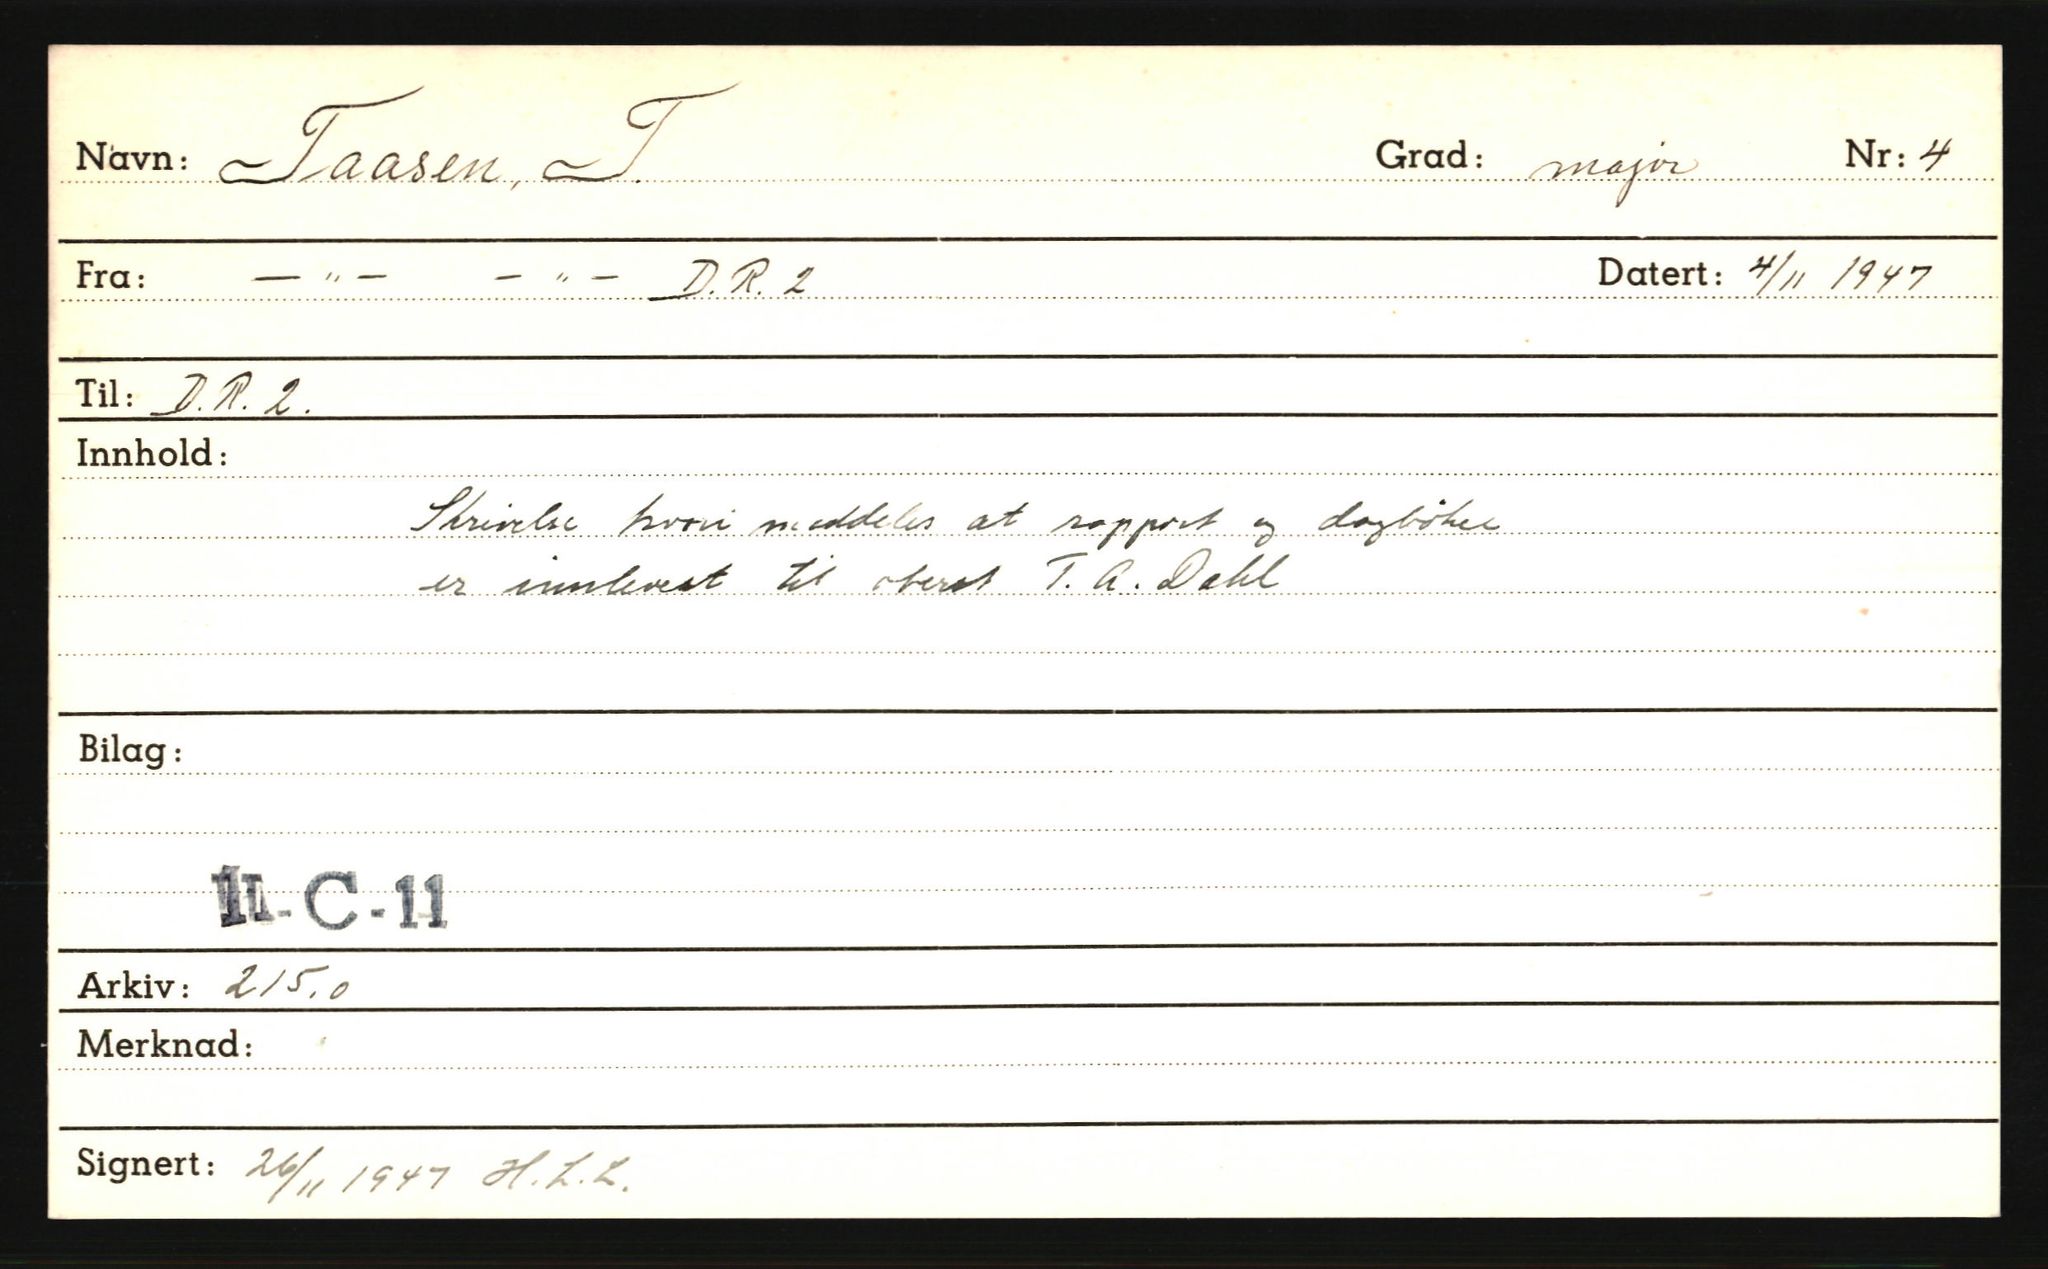 Navn: Taasen, T. Grad: major Nr: 4
Fra: — " — — " — D.R. 2 Datert: 4/11 1947
Til: D.R. 2.
Innhold:
Skrivelse hvori meddeles at rapport og dagbøker
er innlevert til oberst T. A. Dahl
Bilag:
II-C-11
Arkiv: 215.0
Merknad:
Signert: 26/11 1947 H.L.L.